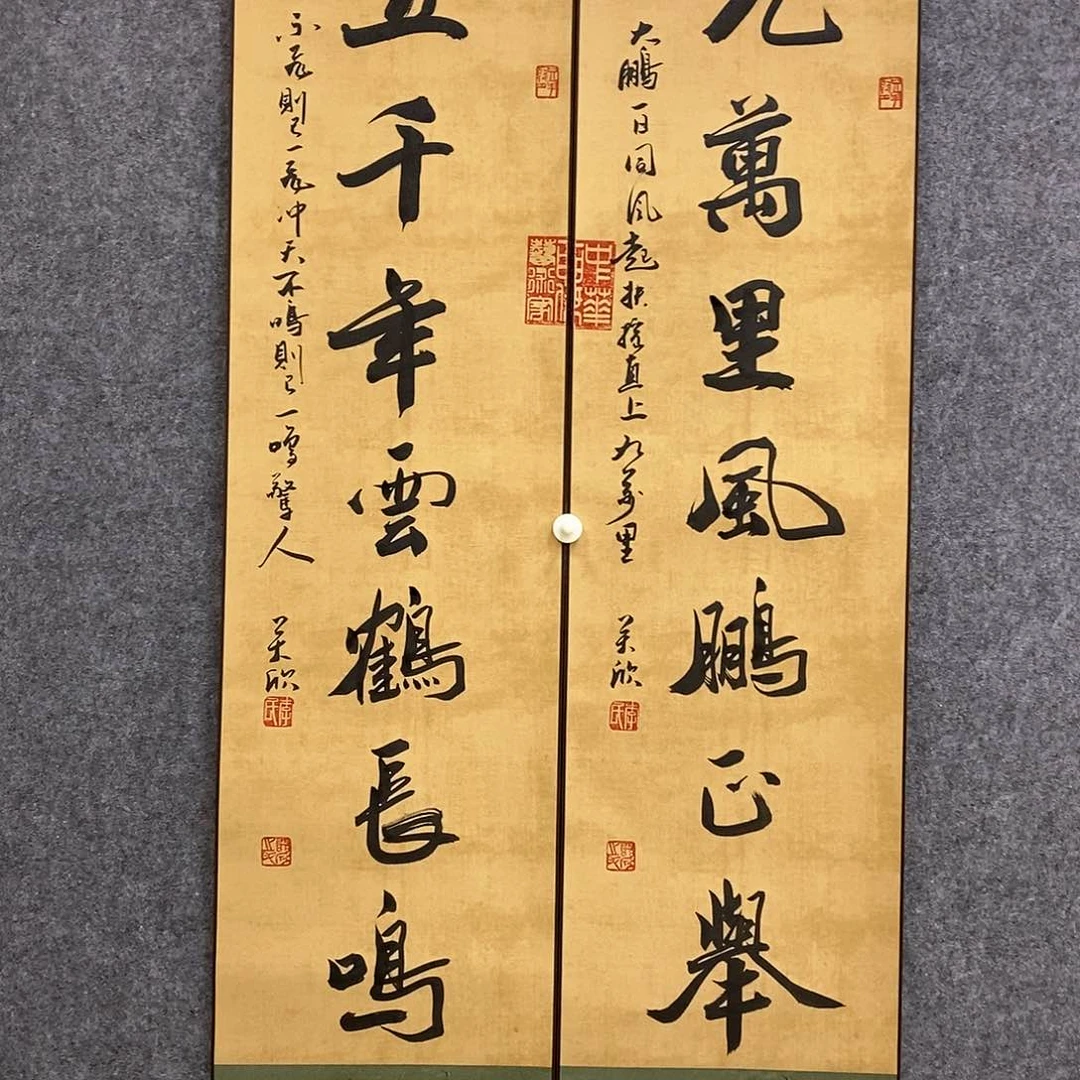 九萬里風鵬正舉
大鵬一日同風起扶搖直上九萬里
欣
五千年雲鶴長鳴
不飛則已一飛冲天不鳴則已一鳴驚人
欣
中華
藝術家
李氏
李氏